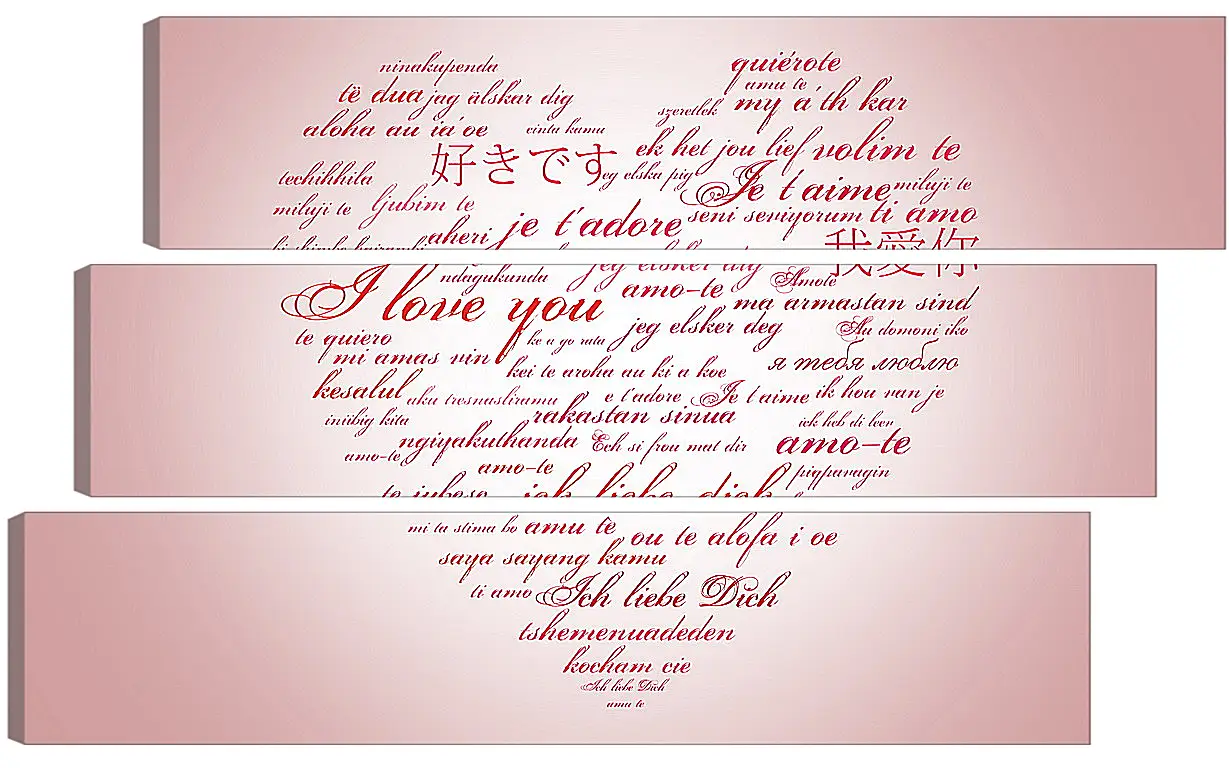 ninakupenda
quiérote
amu te
të dua jag älskar dig
szeretlek my a´th kar
aloha au ia´oe cinta kamu
ek het jou lief volim te
好きです eg elska pig
techihhila
Je t´aime miluji te
miluji te ljubim te
seni seviyorum ti amo
aheri je t´adore
我愛你
ndagukunda jeg elsker dig
Amote
I love you amo-te ma armastan sind
te quiero ke a go rata jeg elsker deg Au domoni iko
mi amas vin kei te aroha au ki a koe я тебя люблю
kesalul aku tresnasliramu e t´adore Je t´aime ik hou van je
iniibig kita rakastan sinua ick heb di leev
ngiyakuthanda Ech si frou mat dir amo-te
amo-te amo-te pigparagin
te iubesc ich liebe dich
mi ta stima bo amu te ou te alofa i oe
saya sayang kamu
ti amo Ich liebe Dich
tshemenuadeden
kocham cie
Ich liebe Dich
amu te